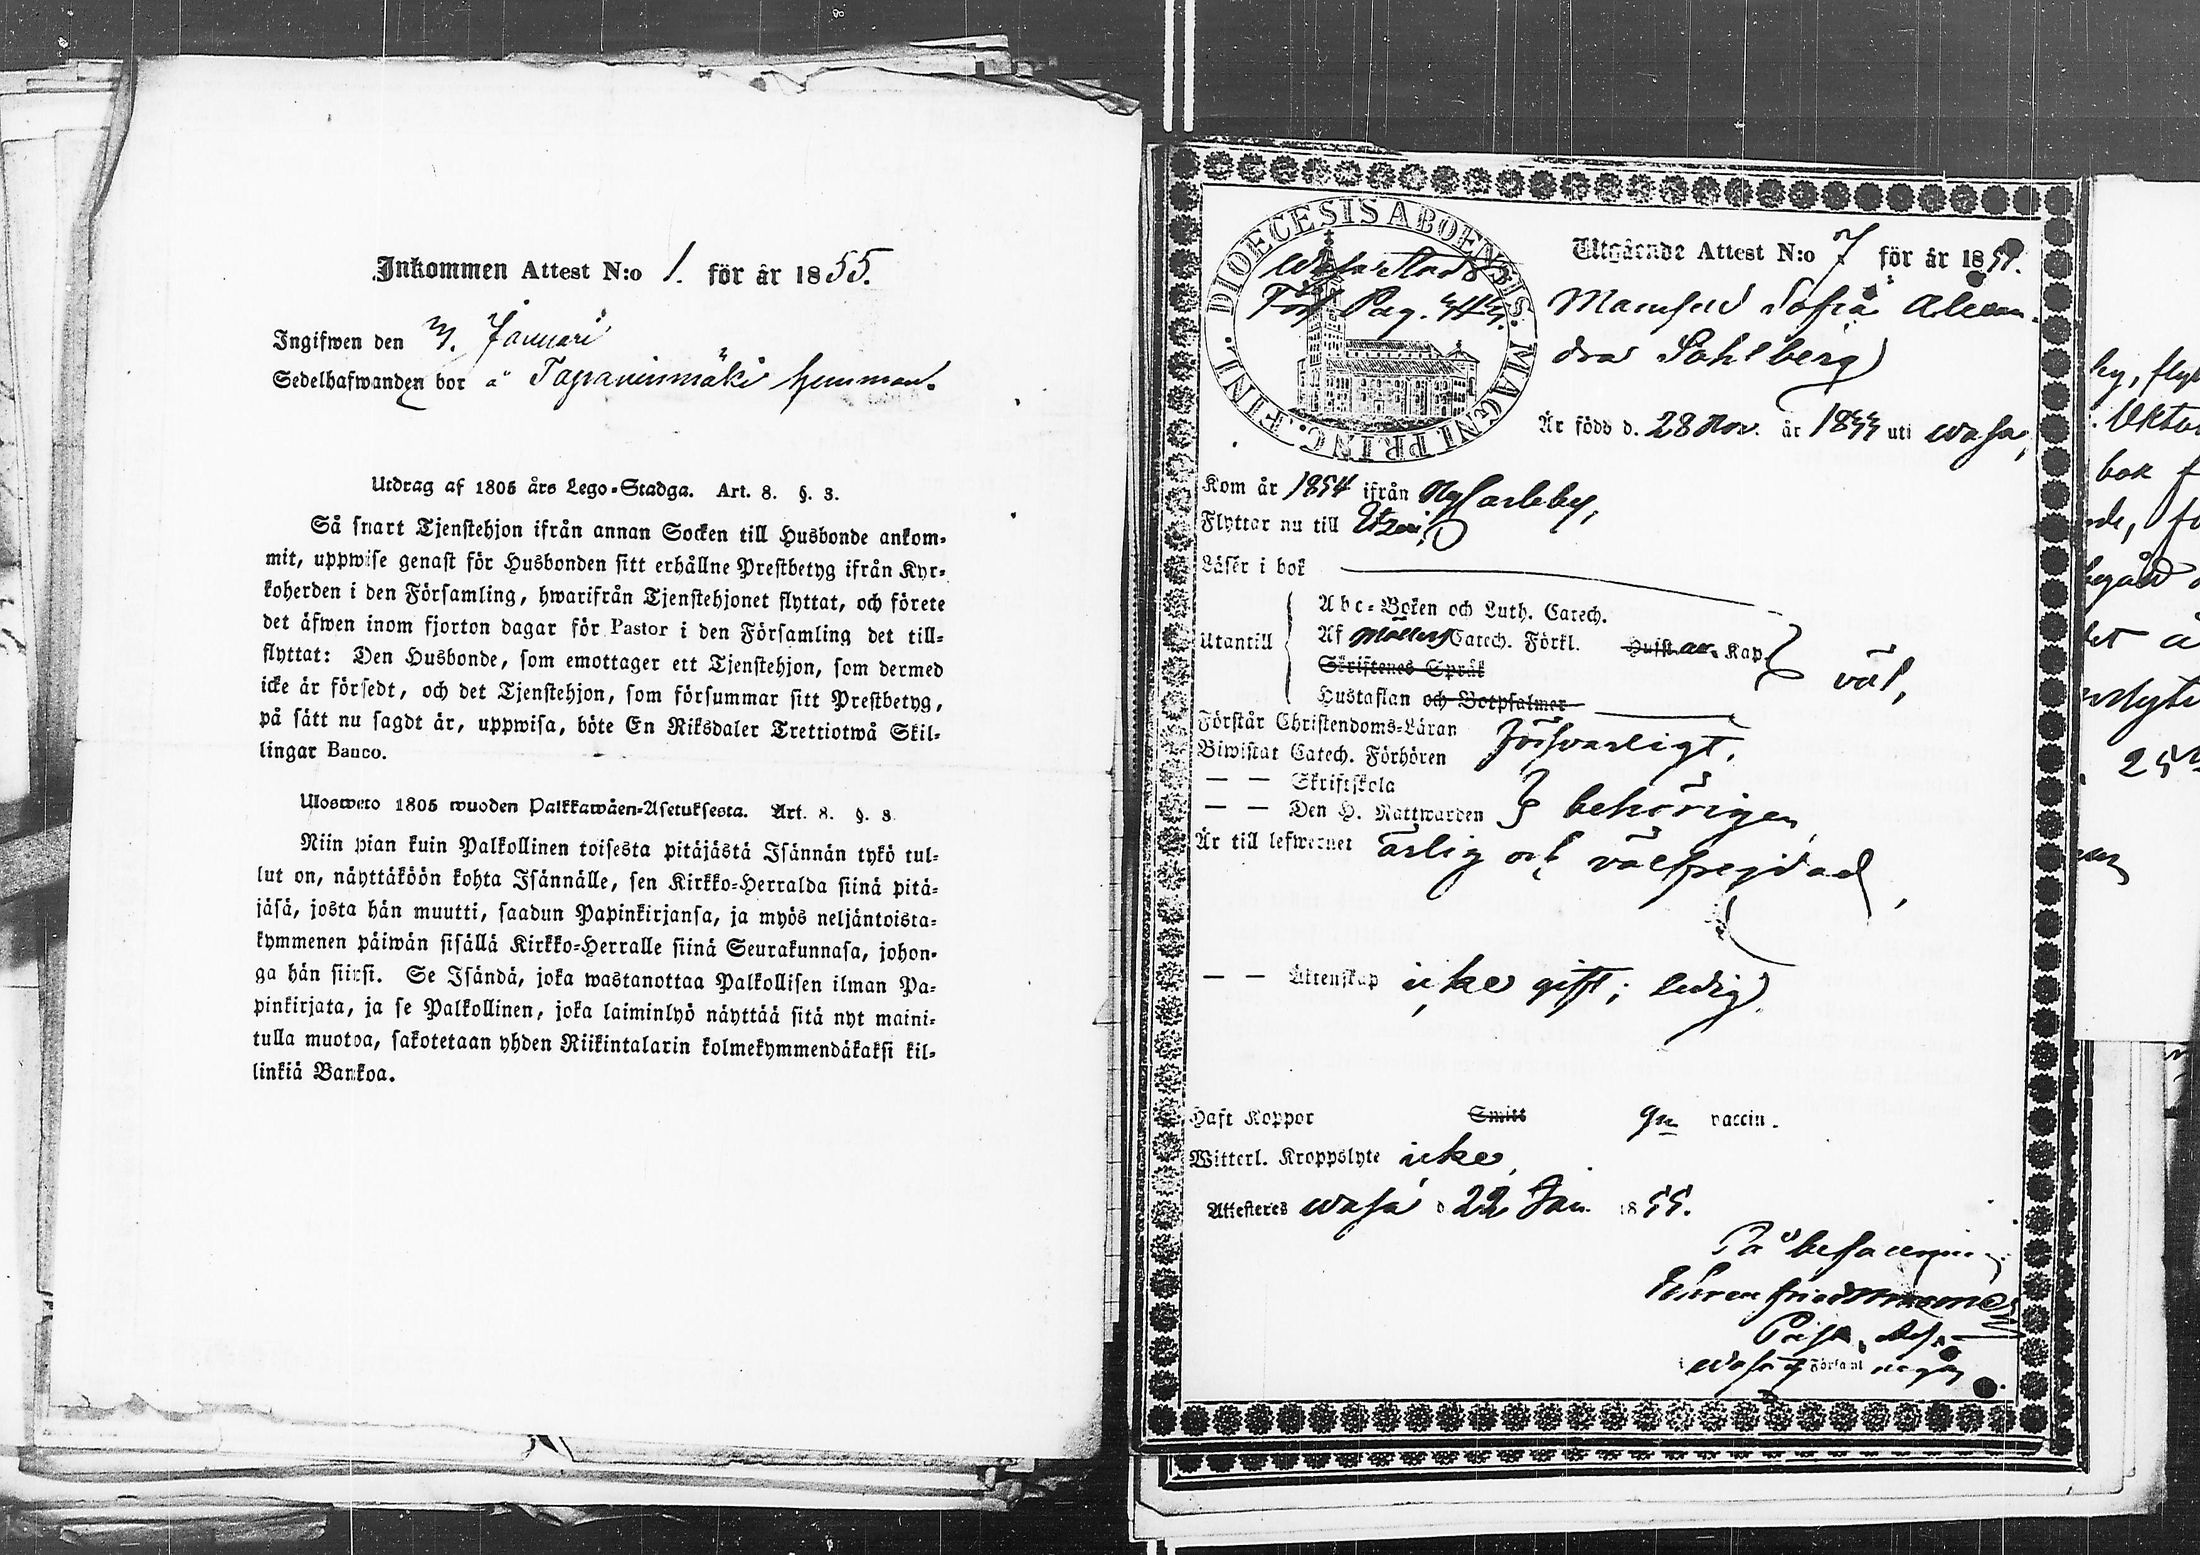 Inkommen Attest N:o 1. för år 1855.
Ingifwen den 3. Januari
Sedelhafwanden bor å Tapaninmäki hemman.
Utdrag af 1805 års Lego-Stadga. Art. 8. §. 3.
Så snart Tjenstehjon ifrån annan Socken till Husbonde ankom-
mit, uppwise genast för Husbonden sitt erhållne Prestbetyg ifrån Kyr-
koherden i den Församling, hwarifrån Tjenstehjonet flyttat, och förete
det äfwen inom fjorton dagar för Pastor i den Församling det till-
flyttat: Den Husbonde, som emottager ett Tjenstehjon, som dermed
icke är försedt, och det Tjenstehjon, som försummar sitt Prestbetyg,
på sätt nu sagdt är, uppwisa, böte En Riksdaler Trettiotwå Skil-
lingar Banco.
Ulosweto 1805 wuoden Palkkawäen-Asetuksesta. Art. 8. §. 3
Niin pian kuin Palkollinen toisesta pitäjästä Isännän tykö tul-
lut on, näyttäköön kohta Isännälle, sen Kirkko-Herralda siinä pitä-
jäsä, josta hän muutti, saadun Papinkirjansa, ja myös neljäntoista-
kymmenen päiwän sisällä Kirkko-Herralle siinä Seurakunnasa, johon-
ga hän siirsi. Se Isändä, joka wastanottaa Palkollisen ilman Pa-
pinkirjata, ja se Palkollinen, joka laiminlyö näyttää sitä nyt maini-
tulla muotoa, sakotetaan yhden Riikintalarin kolmekymmendäkaksi kil-
linkiä Bankoa.
DIOECESIS ABOENSIS. MAGNI PRINC. FINL.
Wasa Stads
Förs Pag.
Utgående Attest N:o 7 för år 1855.
Mamsell Sofia Alexan-
dra Sahlberg
Är född d. 28 Nov. år 1833 uti Wasa,
Kom år 1854 ifrån Nycarleby,
Flyttar nu till Etseri,
Läser i bok
Utantill
Abc-Boken och Luth. Catech.
Af Möllers Catech. Förkl.
Kap
Skriftenes Språk
Hustaflan och Botpsalmer
väl,
Förstår Christendoms-Läran försvarligt.
Biwistat Catech. Förhören
— — Skriftskola
— — Den H. Nattwarden behörigen,
Är till lefwernet ärlig och välfrejdad,
— — Äktenskap icke gift; ledig.
Haft Koppor Smitt gn vaccin.
Witterl. Kroppslyte icke,
Attesteras Wasa d 22 Jan. 1855.
På befallning
i Wasa Församl